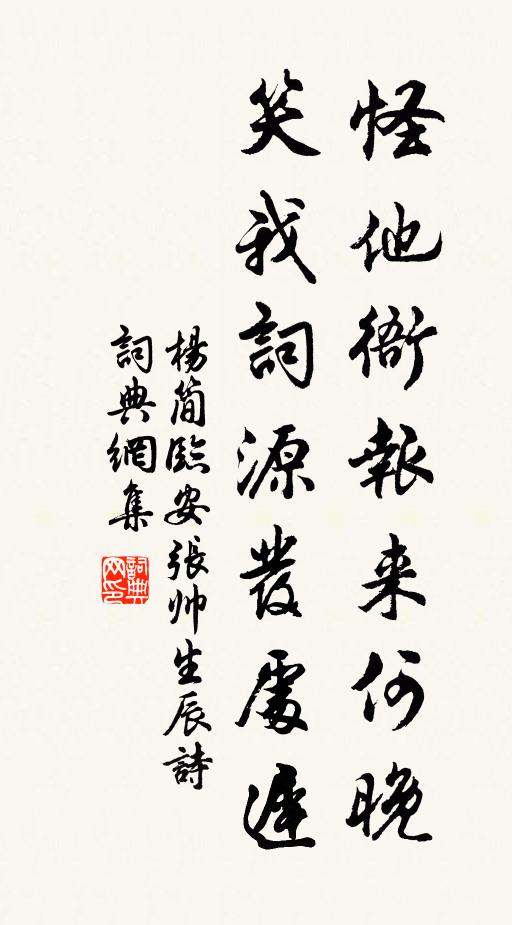 怪他衙報来何晚
笑我詞源發處遲
楊簡臨安張帅生辰詩
詞典網集
詞典网印